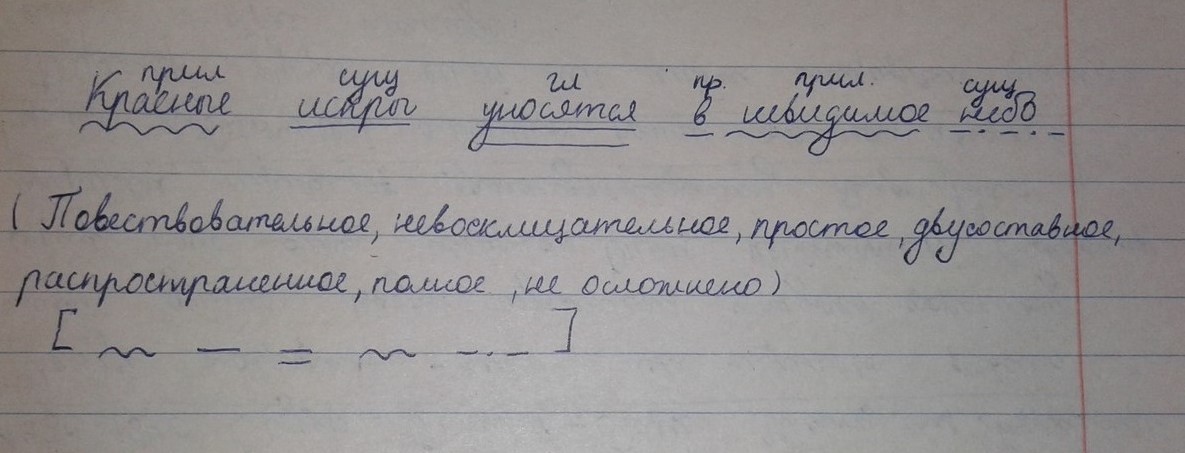 прил сущ гл пр. прил. сущ
Красные искры уносятся в невидимое небо
( Повествовательное, невосклицательное, простое, двусоставное,
распространенное, полное, не осложнено)
[ ]